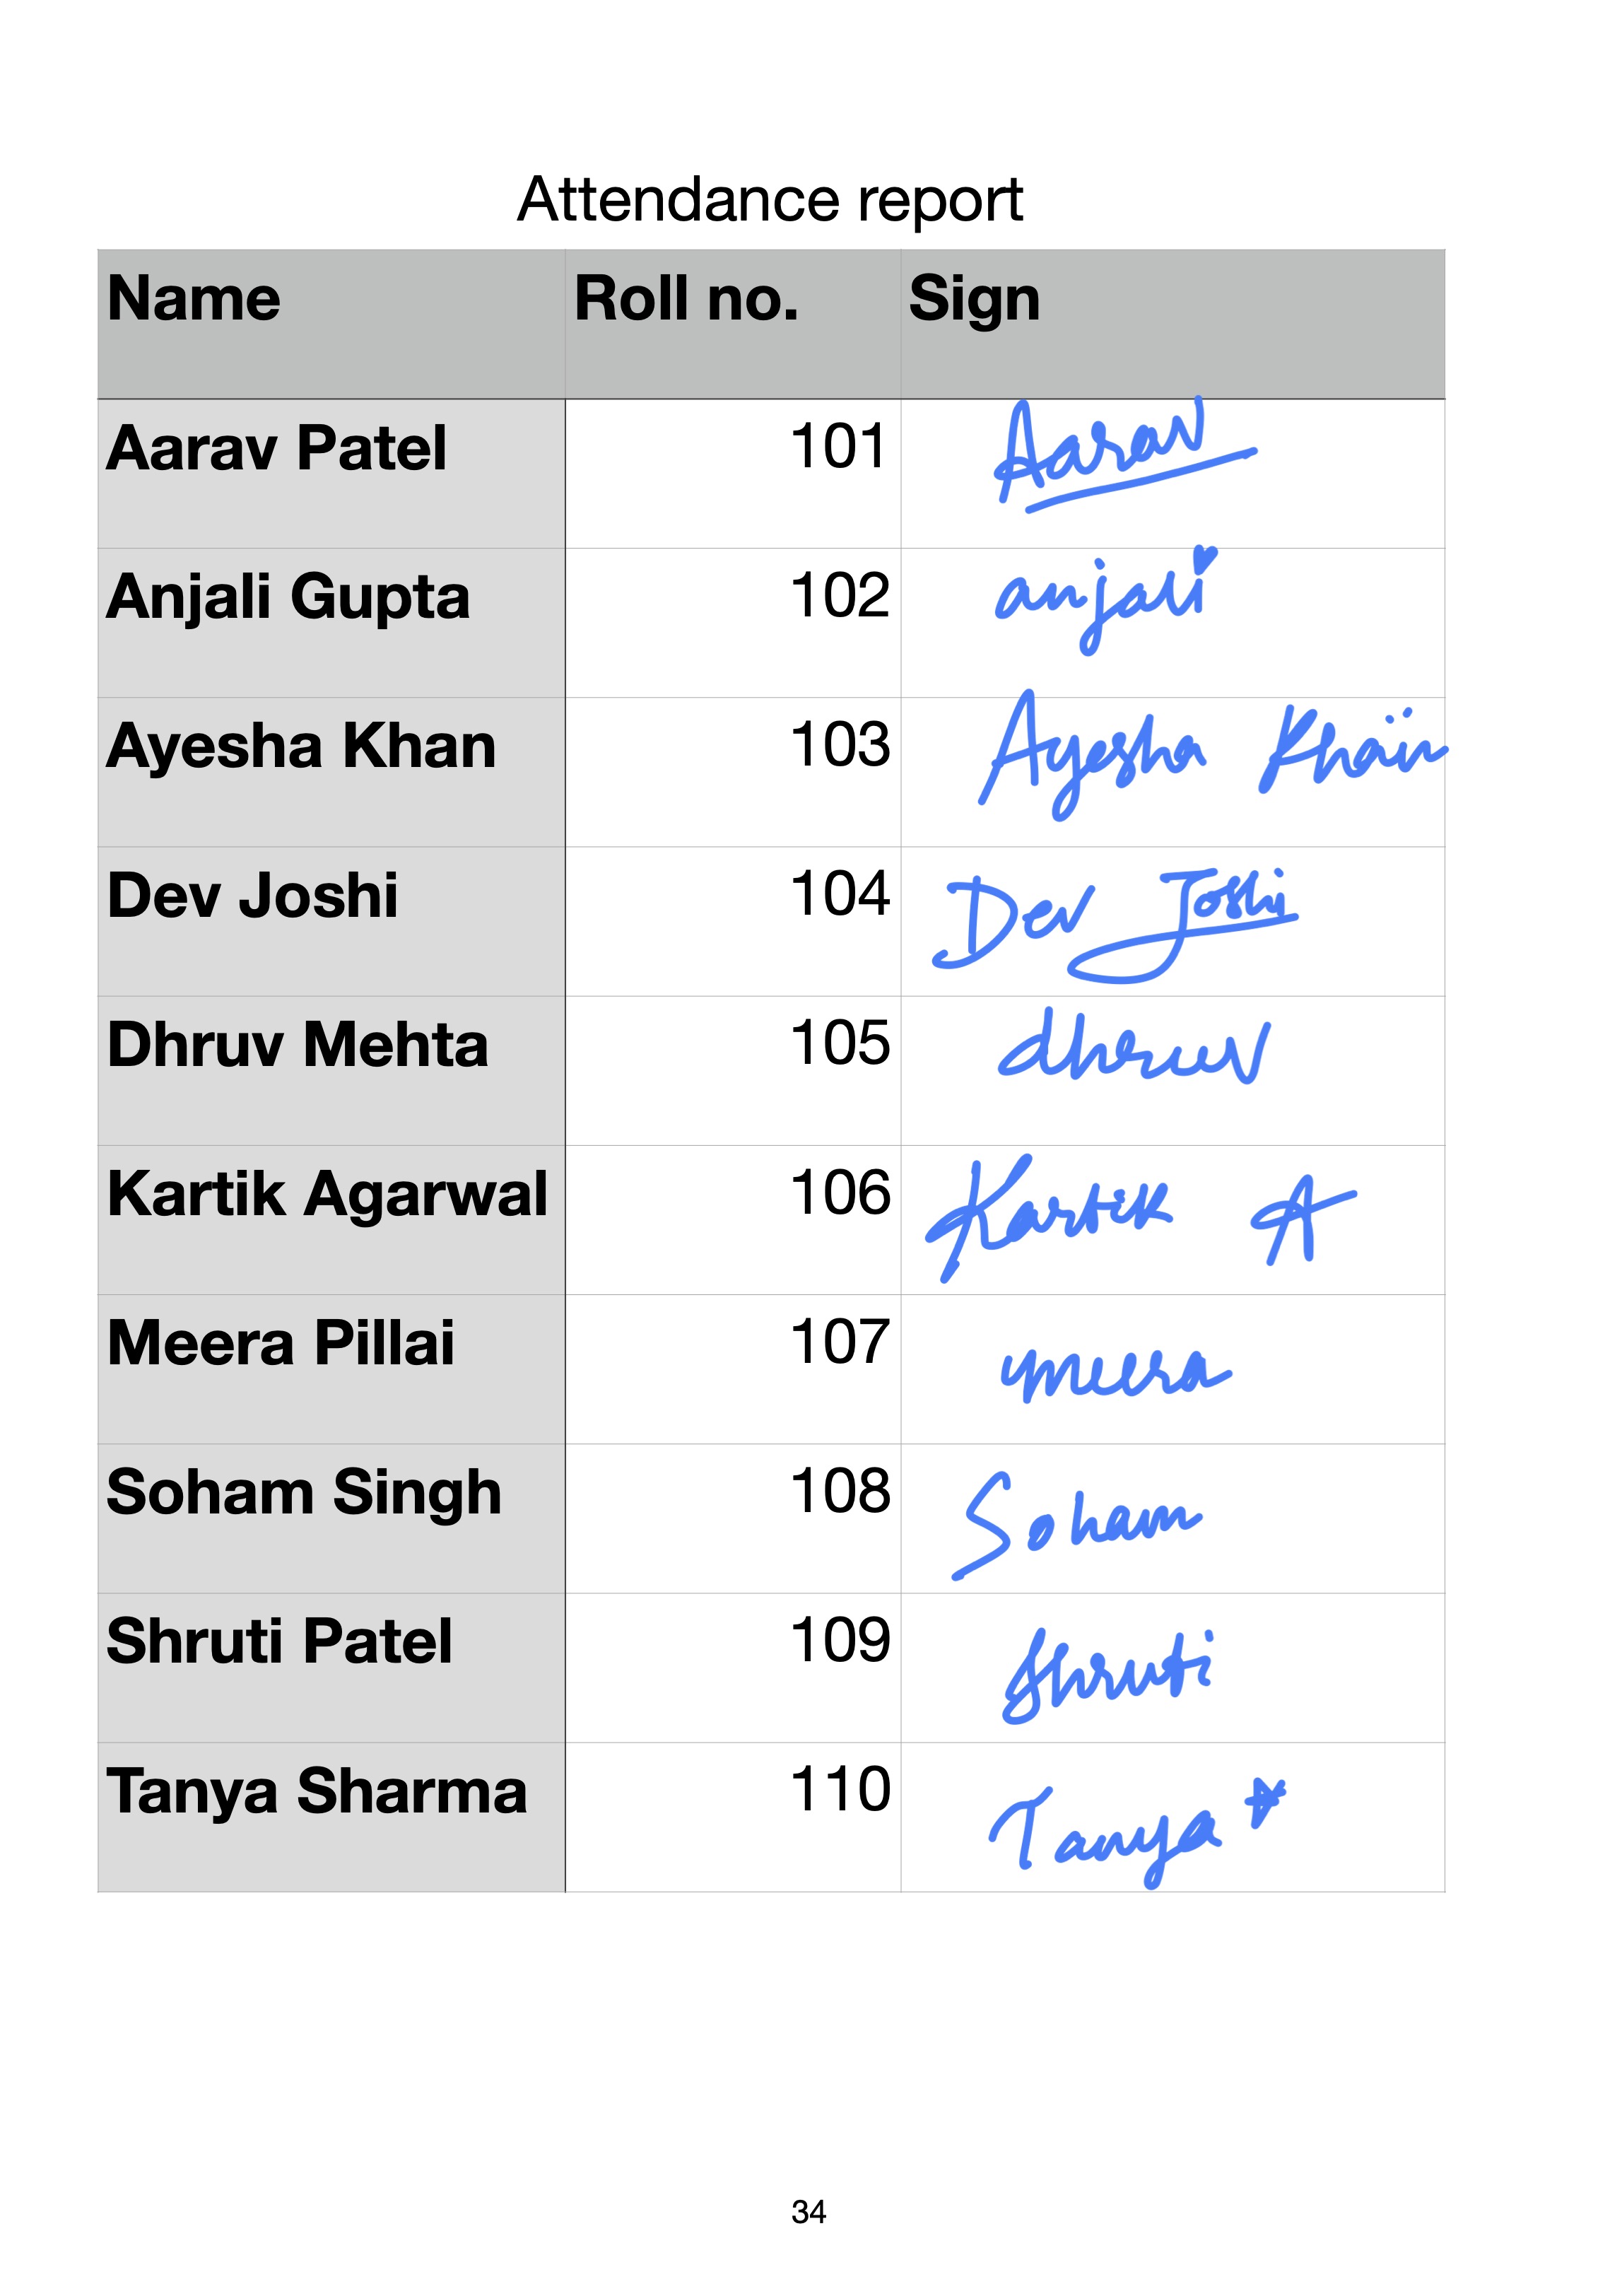 Attendance report
Name Roll no. Sign
Aarav Patel 101 Aarav
Anjali Gupta 102 anjali
Ayesha Khan 103 Ayesha Khan
Dev Joshi 104 Dev Joshi
Dhruv Mehta 105 dhruv
Kartik Agarwal 106 Kartik A
Meera Pillai 107 meera
Soham Singh 108 Soham
Shruti Patel 109 Shruti
Tanya Sharma 110 Tanya
34